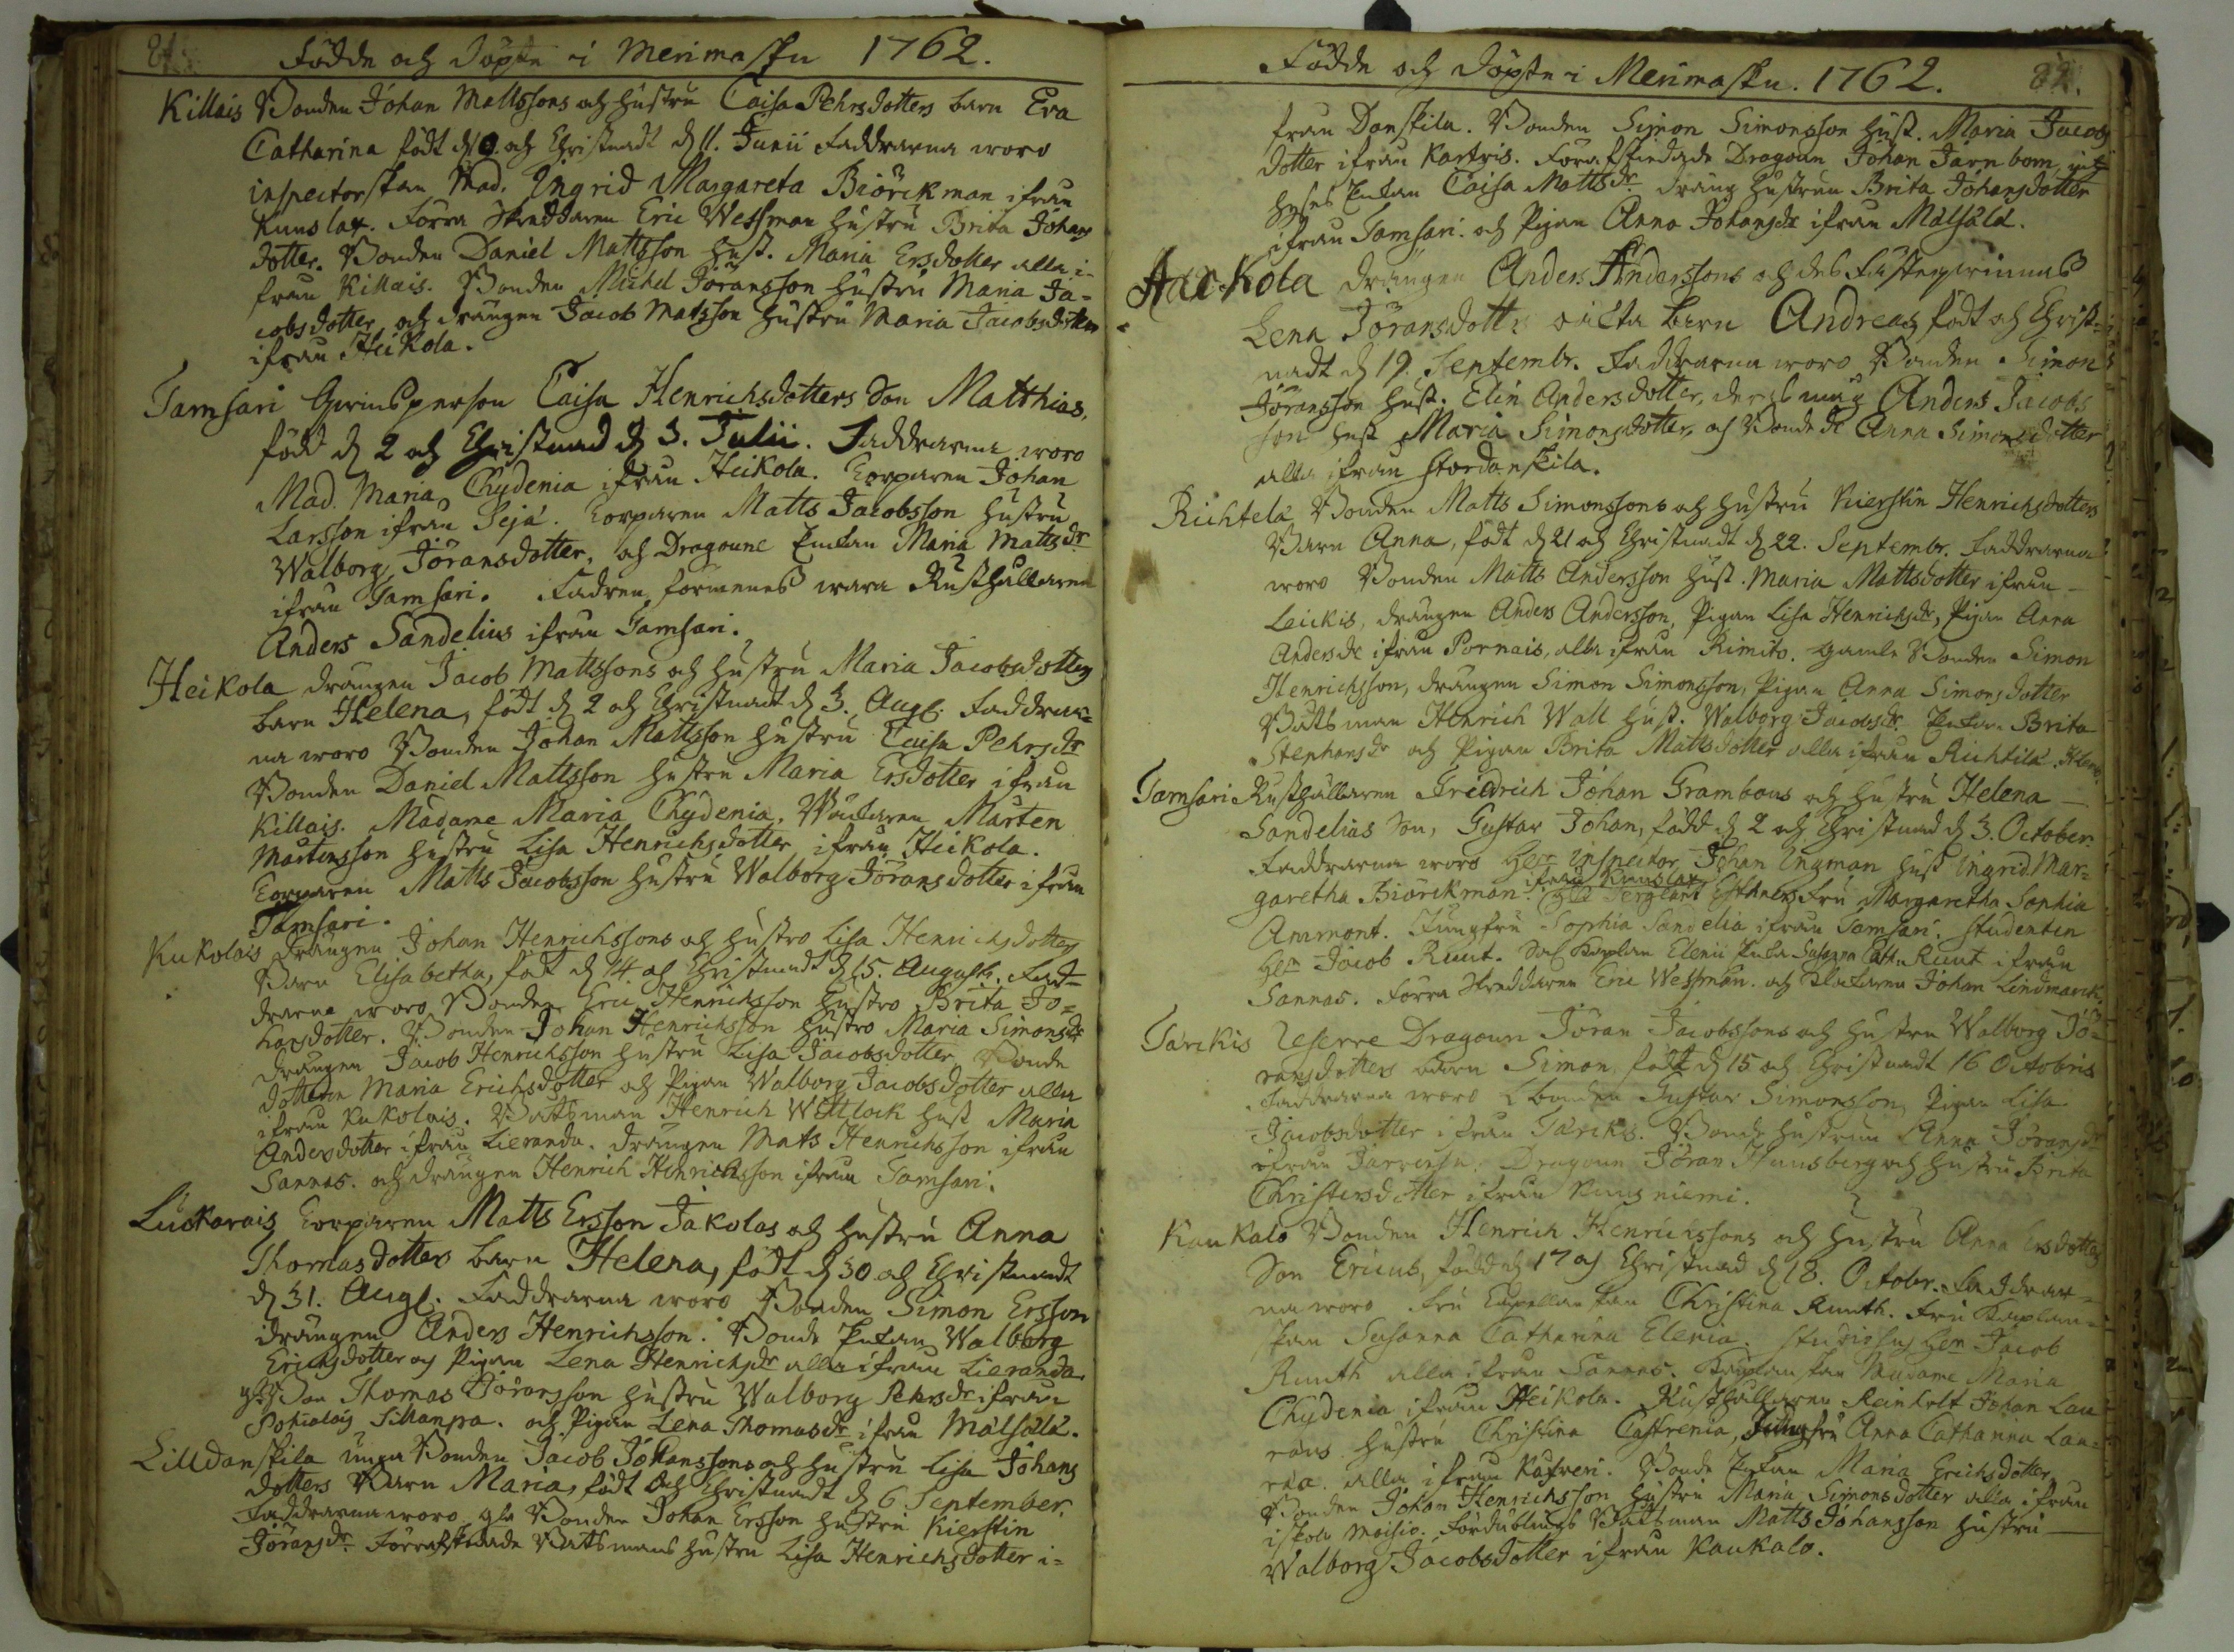 81.
Födde och Döpte i Merimasku 1762.
Killais Bonden Johan Mattssons och hustru Caisa Pehrsdotters barn Eva
Catharina födt d och Christnadt d 11. Junii Faddrarna woro
inspectorskan Mad. Ingrid Margareta Biörckman ifrån
Kuuslax. Förra Skreddaren Eric Wessman hustru Brita Johans
dotter. Bonden Daniel Mattsson hust. Maria Ersdotter alla i-
från Killais. Bonden Michel Jöransson hustru Maria Ja-
cobsdotter och drängen Jacob Matsson hustru Maria Jacobsdotter
ifrån Heikola.
Tamsari qwinsperson Caisa Henrichsdotters Son Matthias,
född d 2 och Christnad d 3. Julii. Faddrarna woro
Mad. Maria Chydenia ifrån Heikola. Torparen Johan
Larsson ifrån Seja. Torparen Matts Jacobsson hustru
Walborg Jöransdotter, och Dragoune Enkan Maria Mattsdr
ifrån Tamsari. Fadren förmenes wara Rusthållaren
Anders Sandelius ifrån Tamsari.
Heikola drängen Jacob Mattssons och hustru Maria Jacobsdotters
barn Helena, födt d 2 och Christnadt d 3. Aug. Faddrar-
na woro Bonden Johan Mattsson hustru Caisa Pehrsdr
Bonden Daniel Mattsson hustru Maria Ersdotter ifrån
Killais. Madame Maria Chydenia. Mårten
Mårtensson hustru Lisa Henrichsdotter ifrån Heikola.
Torparen Matts Jacobsson hustru Walborg Jöransdotter ifrån
Tamsari.
Kukolais drängen Johan Henrichssons och hustro Lisa Henrichsdotters
Barn Elisabetha, födt d 14 och Christnadt d 15. Augusti. Fad-
drarna woro Bonden Eric Henrichsson hustro Brita Jo-
hansdotter. Bonden Johan Henrichsson hustro Maria Simonsdr
drängen Jacob Henrichsson hustru Lisa Jacobsdotter, Bonde
dottern Maria Erichsdotter och Pigan Walborg Jacobsdotter alla
ifrån Kukolais. Båtsman Henrich Wittlock hust Maria
Andersdotter ifrån Lieranda. Drängen Mats Henrichsson ifrån
Sannas. och drängen Henrich Henrichsson ifrån Tamsari.
Luokarais Torparen Matts Ersson Jakolas och hustru Anna
Thomasdotters barn Helena, födt d 30 och Christnadt
d 31. Aug. Faddrarna woro Bonden Simon Ersson
drängen Anders Henrichsson. Bonde Enkan Walborg
Erichsdotter och Pigan Lena Henrichsdr alla ifrån Lieranda.
Thomas Jöransson hustru Walborg Pehrsdr ifrån
Pohialais Sillanpä. och Pigan Lena Thomasdr ifrån Målsälä.
Lilldanskila unga Bonden Jacob Johanssons och hustru Lisa Johans
dotters Barn Maria, födt och Christnadt d 6 September.
Faddrarna woro gla Bonden Johan Ersson hustru Kierstin
Jöransdr. Förrafskedade Båtsmans hustru Lisa Henrichsdotter i-
Födde och Döpte i Merimasku. 1762. 82.
från Danskila. Bonden Simon Simonsson hust. Maria Jacobs
dotter ifrån Karfris. Förafskedade Dragoun Johan Järnbom,
Enkan Caisa Mattsdr. dräng hustrun Brita Johansdotter
ifrån Tamsari. och Pigan Anna Johansdr ifrån Målsälä.
Häkola drängen Anders Anderssons och des Fästeqwinnas
Lena Jöransdotters oäkta barn Andreas, födt och Christ-
nadt d 19. Septembr. Faddrarna woro Bonden Simon
Jöransson hust. Elin Andersdotter, Anders Jacobs
son hust Maria Simonsdotter, och Bonde dr Anna Simonsdotter
alla ifrån Stordanskila.
Richtelä Bonden Matts Simonssons och hustru Kierstin Henrichsdotters
Barn Anna, födt d 21 och Christnadt d 22. Septembr. Faddrarna
woro Bonden Matts Andersson hust. Maria Mattsdotter ifrån
Laickis, drängen Anders Andersson, Pigan Lisa Henrichsdr, Pigan Anna
Andersdr ifrån Pornais, alla ifrån Rimito. gamle Bonden Simon
Henrichsson, drängen Simon Simonsson, Pigan Anna Simonsdotter
Båtsman Henrich Wall hust. Walborg Jacobsdr. Enkan Brita
Stephansdr och Pigan Brita Mattsdotter alla ifrån Richtilä.
Tamsari Rusthållaren Friedrich Johan Grambous och hustru Helena
Sandelias Son, Gustav Johan, född d 2 och Christnad d 3. October.
Faddrarna woro Herr Inspector Johan Ingman hust Ingrid Mar-
garetha Biörckman ifrån Kuuslax. Sergeant Esthners Fru Margaretha Sophia
Ammont. Jungfru Sophia Sandelia ifrån Tamsari. Studenten
Herr Jacob Ruut. Caplan Elenii Enka Susanna Cath. Ruut ifrån
Sannas. Förra Skreddaren Eric Wessman. och Klockaren Johan Lindmarck.
Tarckis Reserve Dragoun Jöran Jacobssons och hustru Walborg Jö-
ransdotters barn Simon, födt d 15 och Christnadt 16 Octobris
Faddrarna woro Bonden Gustav Simonsson, Pigan Lisa
Jacobsdotter ifrån Tarckis. Bonde hustrun Anna Jöransdr
ifrån Dragoun Jöran Huusberg och hustru Brita
Christersdotter ifrån Kuusniemi.
Kaukalo Bonden Henrich Henrichssons och hustru Anna Ersdotters
Son Ericus, född d 17 och Christnad d 18. Octobr. Faddrar-
na woro Fru Capellanskan Christina Ruuth. Fru Kaplan-
skan Susanna Catharina Elenia. Studiosus Herr Jacob
Ruuth alla ifrån Sannas. Kaplanskan Madame Maria
Chydenia ifrån Heikola. Rusthållaren Reinholt Johan Lau
raeus hustru Christina Castrenia, Jungfru Anna Catharina Lau-
rea. alla ifrån Kaxveri. Bonde Enkan Maria Erichsdotter
Bonden Johan Henrichsson hustru Maria Simonsdotter alla ifrån
iskola Moisio. Fördublings Båtsman Matts Johansson hustru
Walborg Jacobsdotter ifrån Kaukalo.